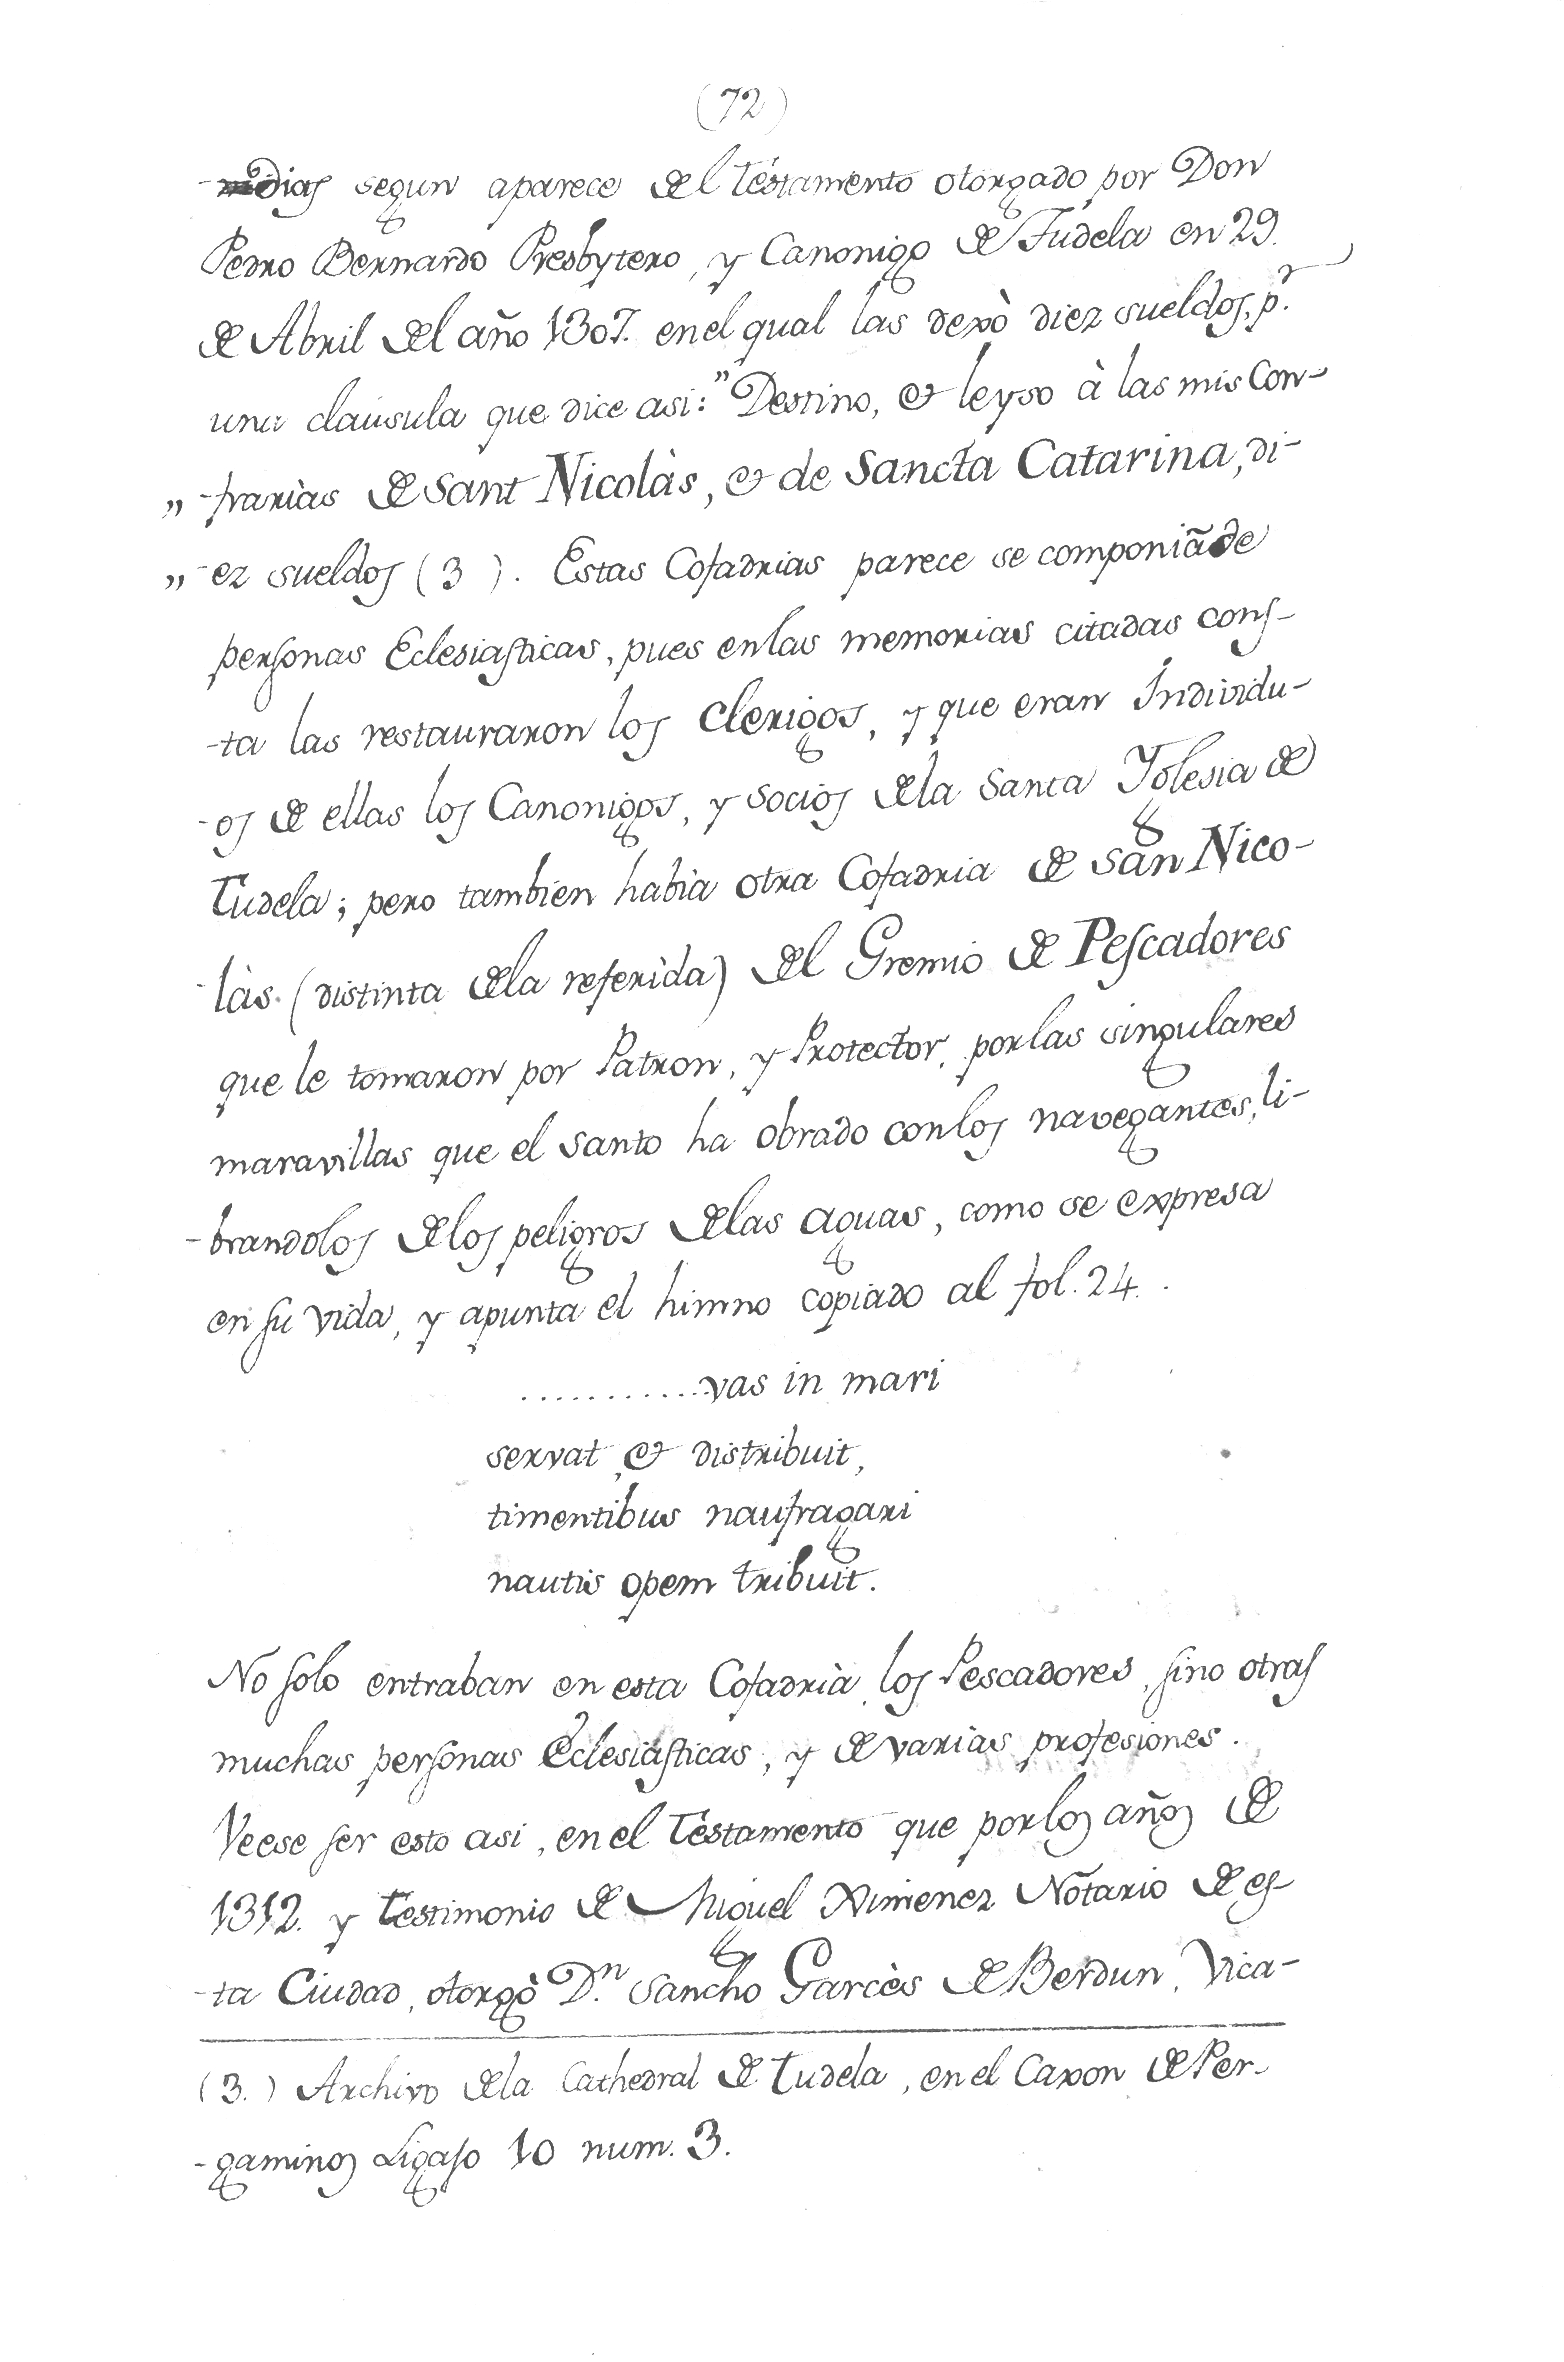 (72)
-dias segun aparece del Testamento otorgado por Don
Pedro Bernardo Presbytero, y Canonigo de Tudela en 29.
de Abril del año 1307. en el qual las dexò diez sueldos, p.r
una clausula que dice asi: " Destino, & leyso à las mis Con-
" -frarias de Sant Nicolàs, & de Sancta Catarina, di-
" -ez sueldos (3). Estas Cofadrias parece se componiã de
personas Eclesiasticas, pues en las memorias citadas cons-
-ta las restauraron los Clerigos, y que eran Individu-
-os de ellas los Canonigos, y socios de la Santa Yglesia de
Tudela; pero tambien habia otra Cofadria de San Nico-
-làs (distinta de la referida) del Gremio de Pescadores
que le tomaron por Patron, y Protector, por las singulares
maravillas que el Santo ha obrado con los navegantes, li-
-brandolos de los peligros de las aguas, como se expresa
en su vida, y apunta el himno copiado al fol. 24.
...........vas in mari
servat, & distribuit,
timentibus naufragari
nautis opem tribuit.
No solo entraban en esta Cofadria los Pescadores, sino otras
muchas personas Eclesiasticas, y de varias profesiones.
Veese ser esto asi, en el Testamento que por los años de
1312. y Testimonio de Miguel Ximenez Notario de es-
-ta Ciudad, otorgò D.n Sancho Garcès de Berdun, Vica-
(3.) Archivo de la Cathedral de Tudela, en el Caxon de Per-
-gaminos Ligaso 10 num. 3.